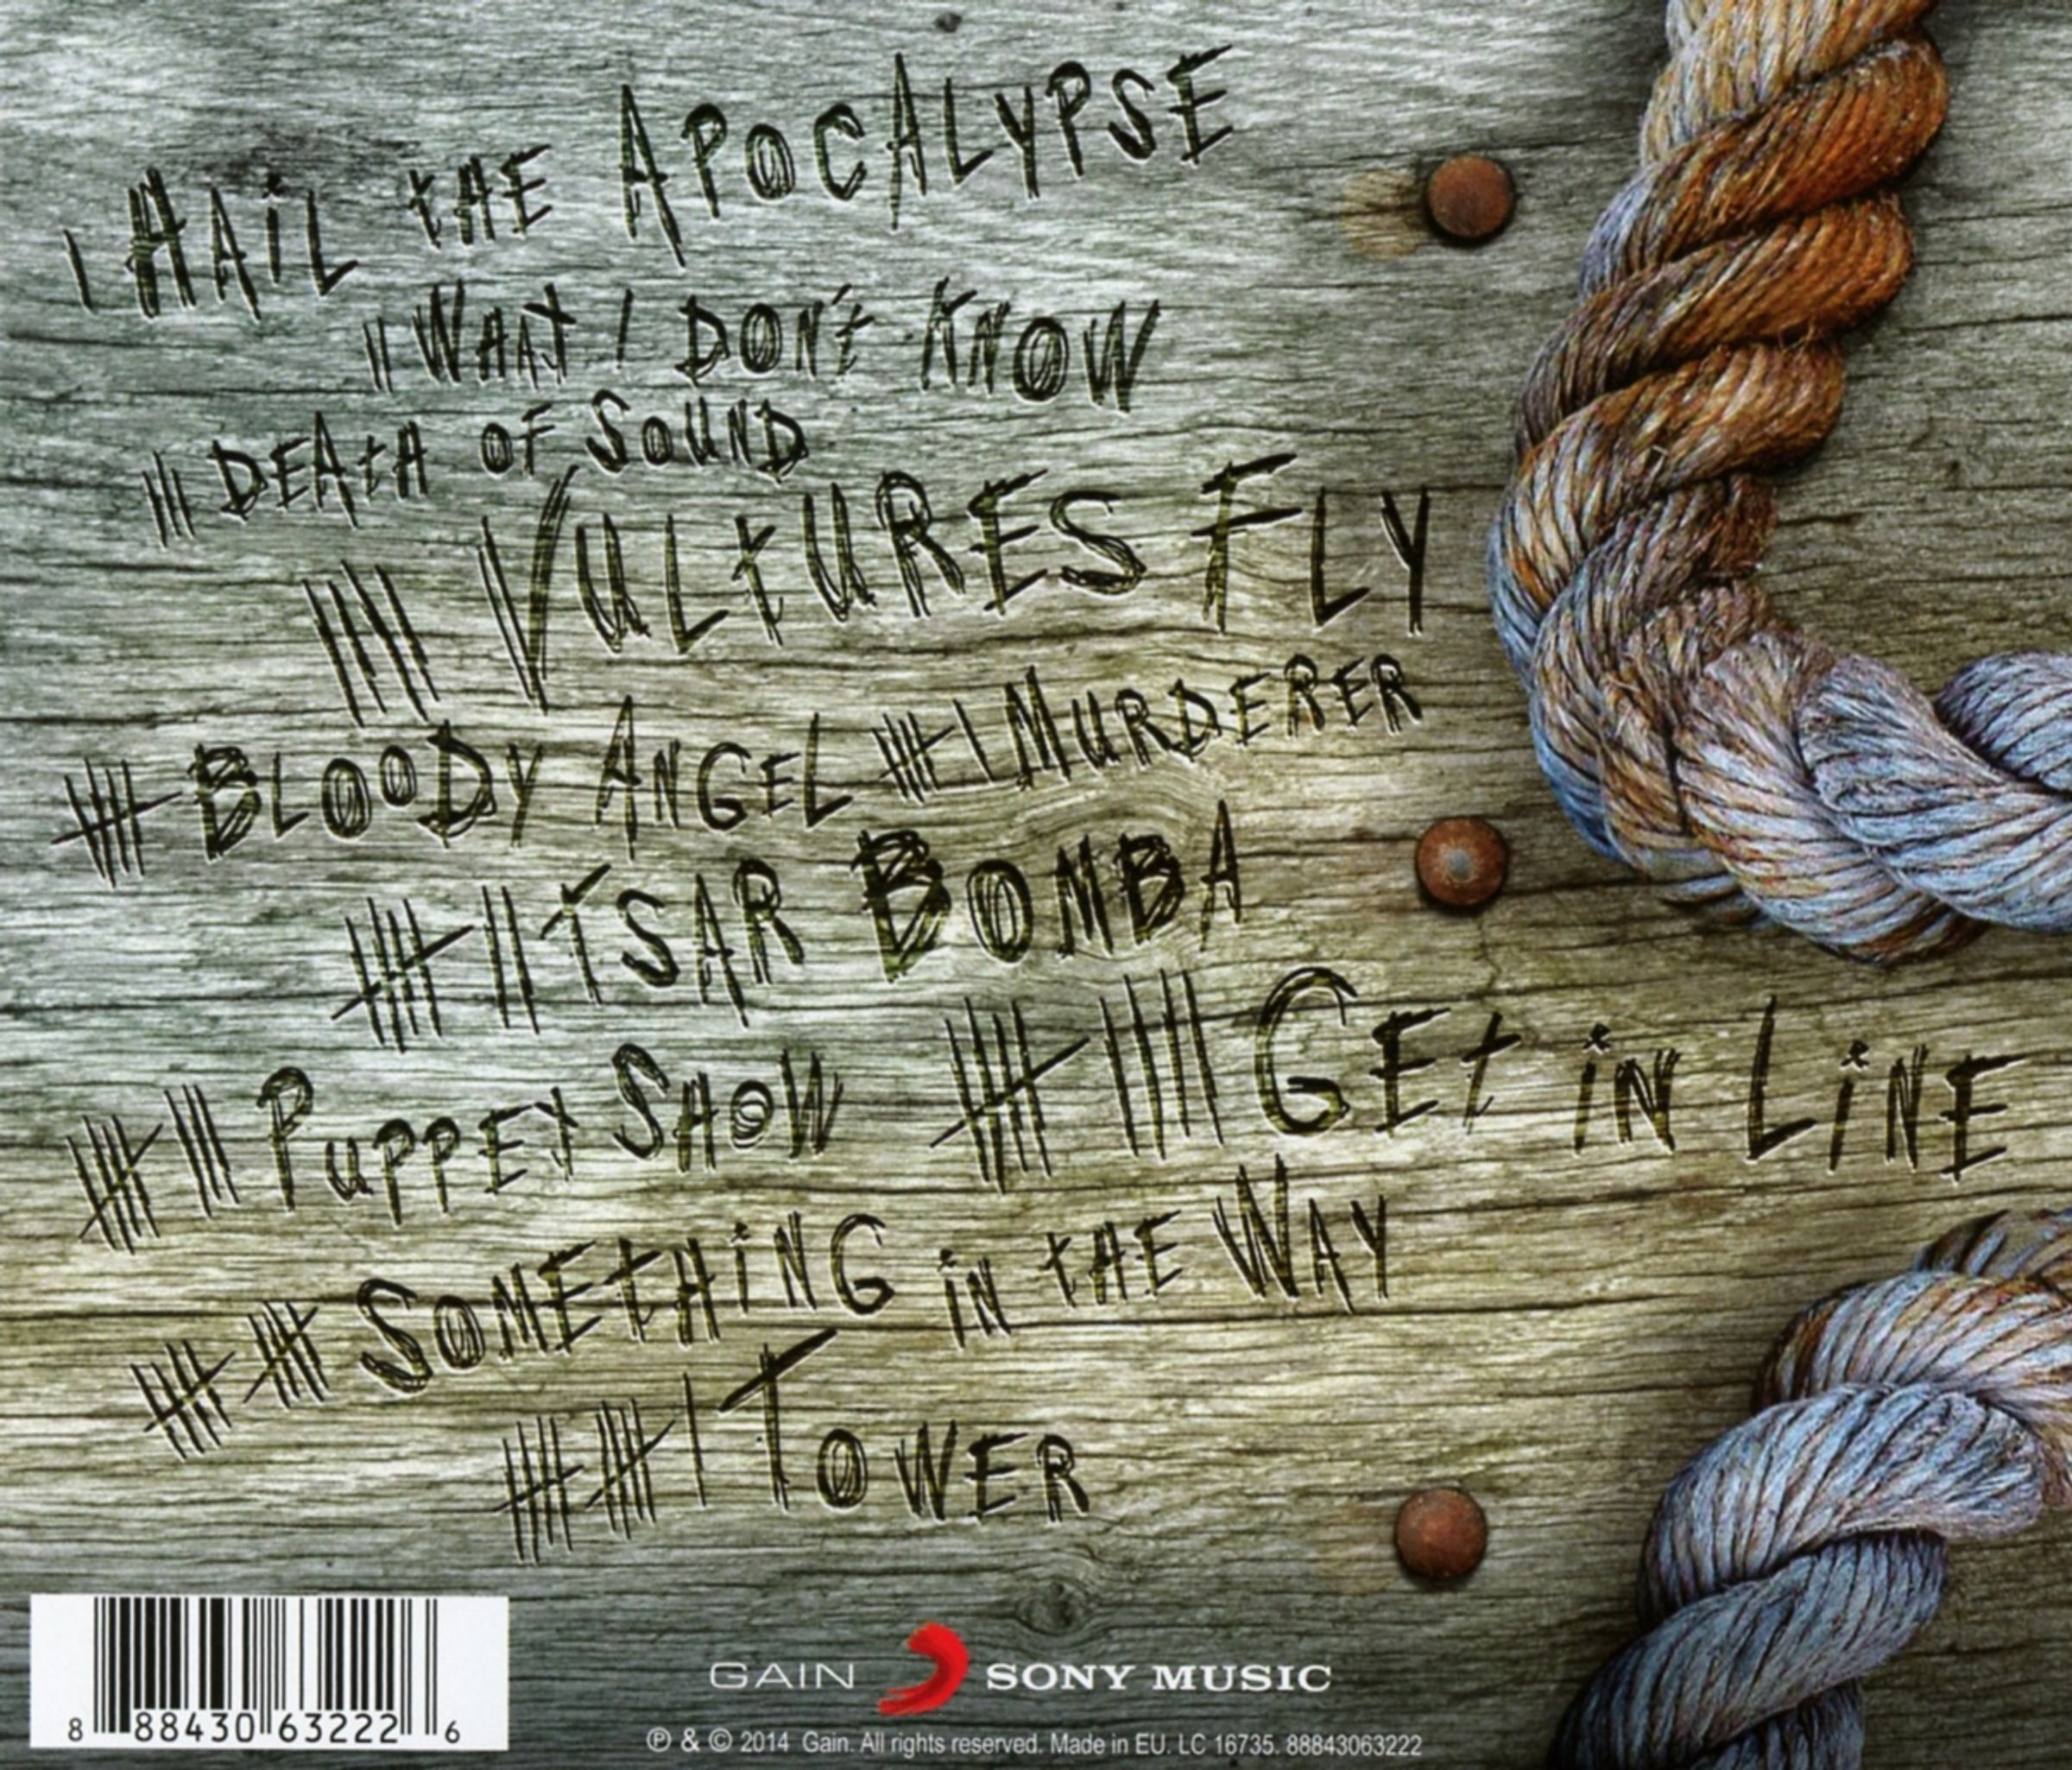 I HAiL tHE APOCALYPSE
II WHAt I DON't KNOW
III DEAtH OF SOUND
IIII VULtURES FLY
IIII BLOODY ANGEL IIII I MURDERER
IIII II TSAR BOMBA
IIII III PUPPEt SHOW IIII IIII GEt iN LiNE
IIII IIII SOMEtHiNG iN tHE WAY
IIII IIII I TOWER
8 88430 63222 6
GAIN SONY MUSIC
℗ & © 2014 Gain. All rights reserved. Made in EU. LC 16735. 88843063222